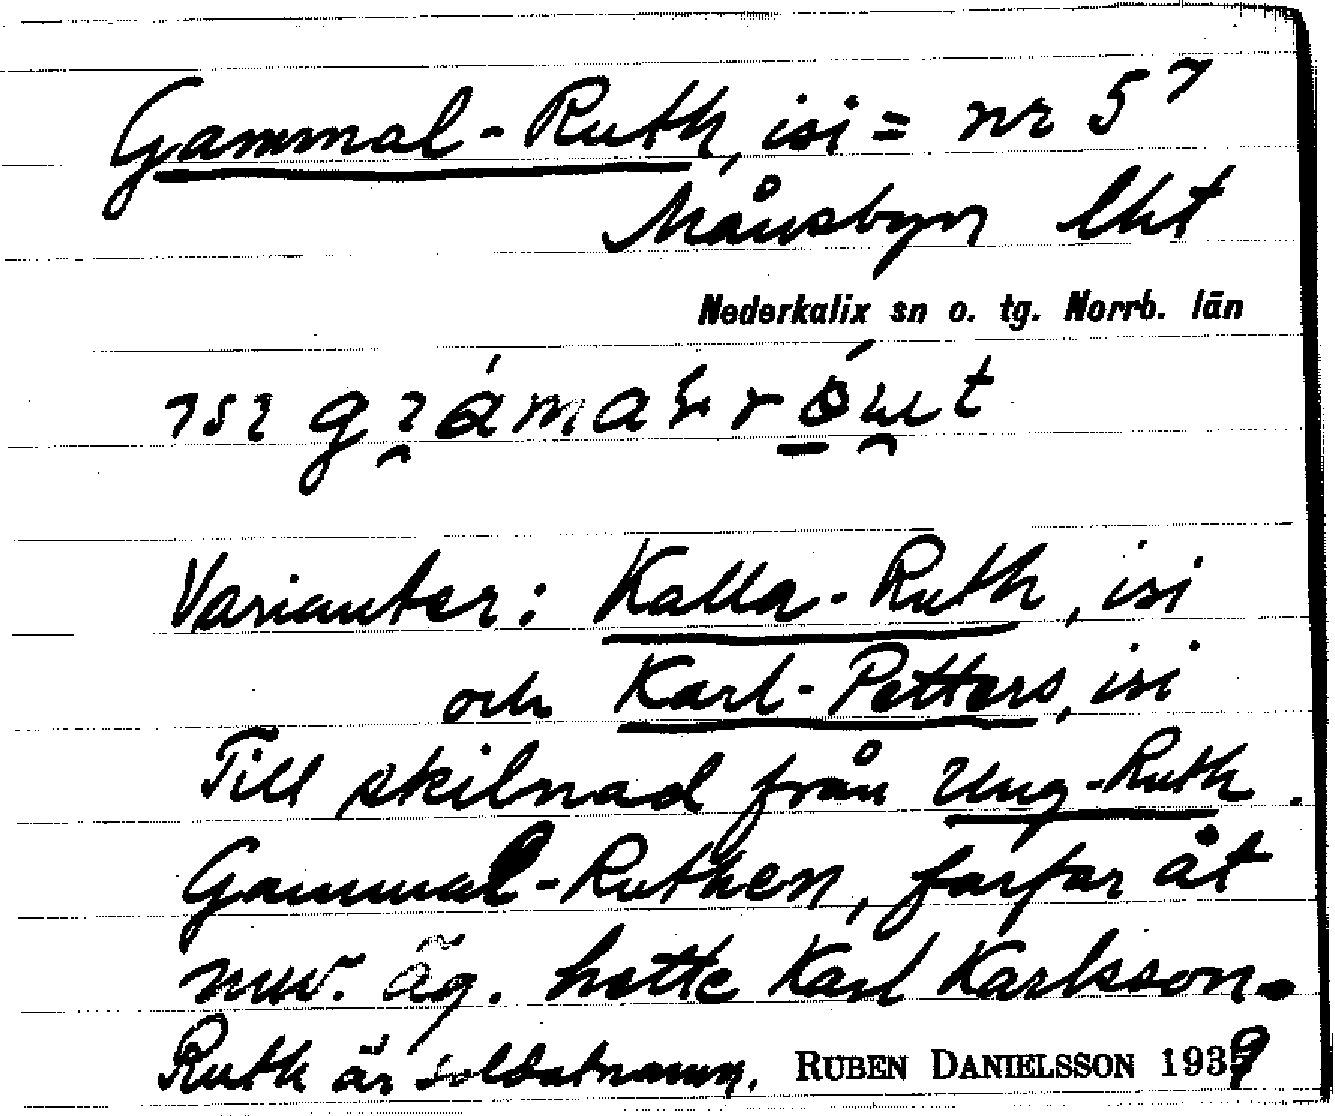 Gammal-Ruth, isi = nr 5⁷
Månsbyn lht
Nederkalix sn o. tg. Norrb. län
Varianter: Kalla-Ruth, isi
och Karl-Petters, isi
Till skilnad från Ung-Ruth.
Gammal-Ruthen, farfar åt
nuv. äg. hette Karl Karlsson.
Ruth är soldatnamn. RUBEN DANIELSSON 1939